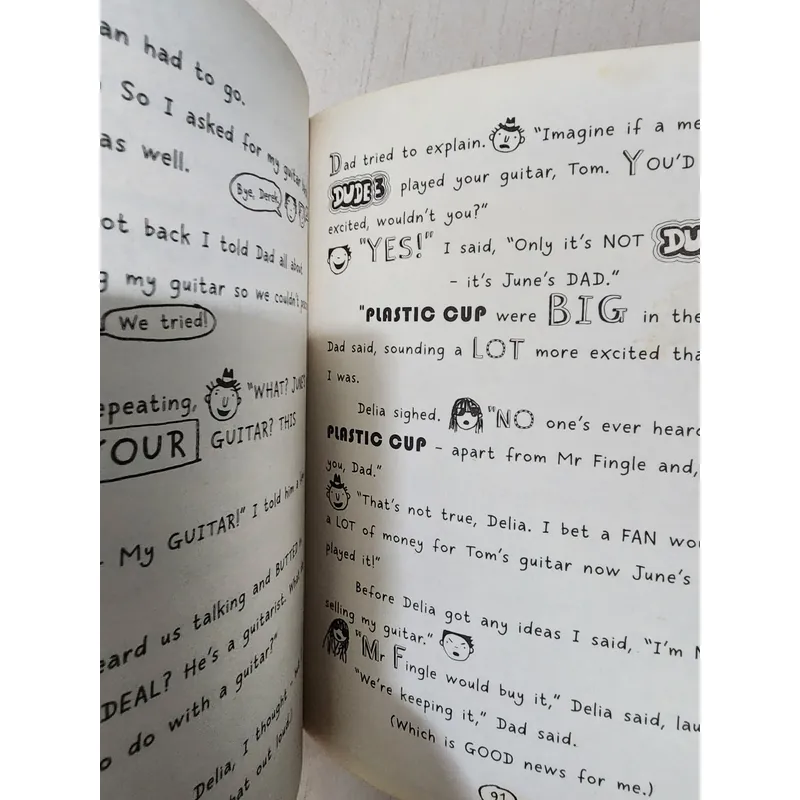 an had to go.
So I asked for my guitar
as well.
Bye, Derek
ot back I told Dad all about
g my guitar so we couldn't
We tried!
epeating, "WHAT? JUNE'S
YOUR GUITAR? THIS
- My GUITAR!" I told him a
eard us talking and BUTTED
DEAL? He's a guitarist. What
o do with a guitar?"
Delia, I thought - but
hat out loud.)
Dad tried to explain. "Imagine if a me
DUDE 3 played your guitar, Tom. YOU'D
excited, wouldn't you?"
"YES!" I said, "Only it's NOT DU
- it's June's DAD."
"PLASTIC CUP were BIG in the
Dad said, sounding a LOT more excited tha
I was.
Delia sighed. "NO one's ever heard
PLASTIC CUP - apart from Mr Fingle and,
you, Dad."
"That's not true, Delia. I bet a FAN wou
a LOT of money for Tom's guitar now June's
played it!"
Before Delia got any ideas I said, "I'm N
selling my guitar."
"Mr Fingle would buy it," Delia said, lau
"We're keeping it," Dad said.
(Which is GOOD news for me.)
91